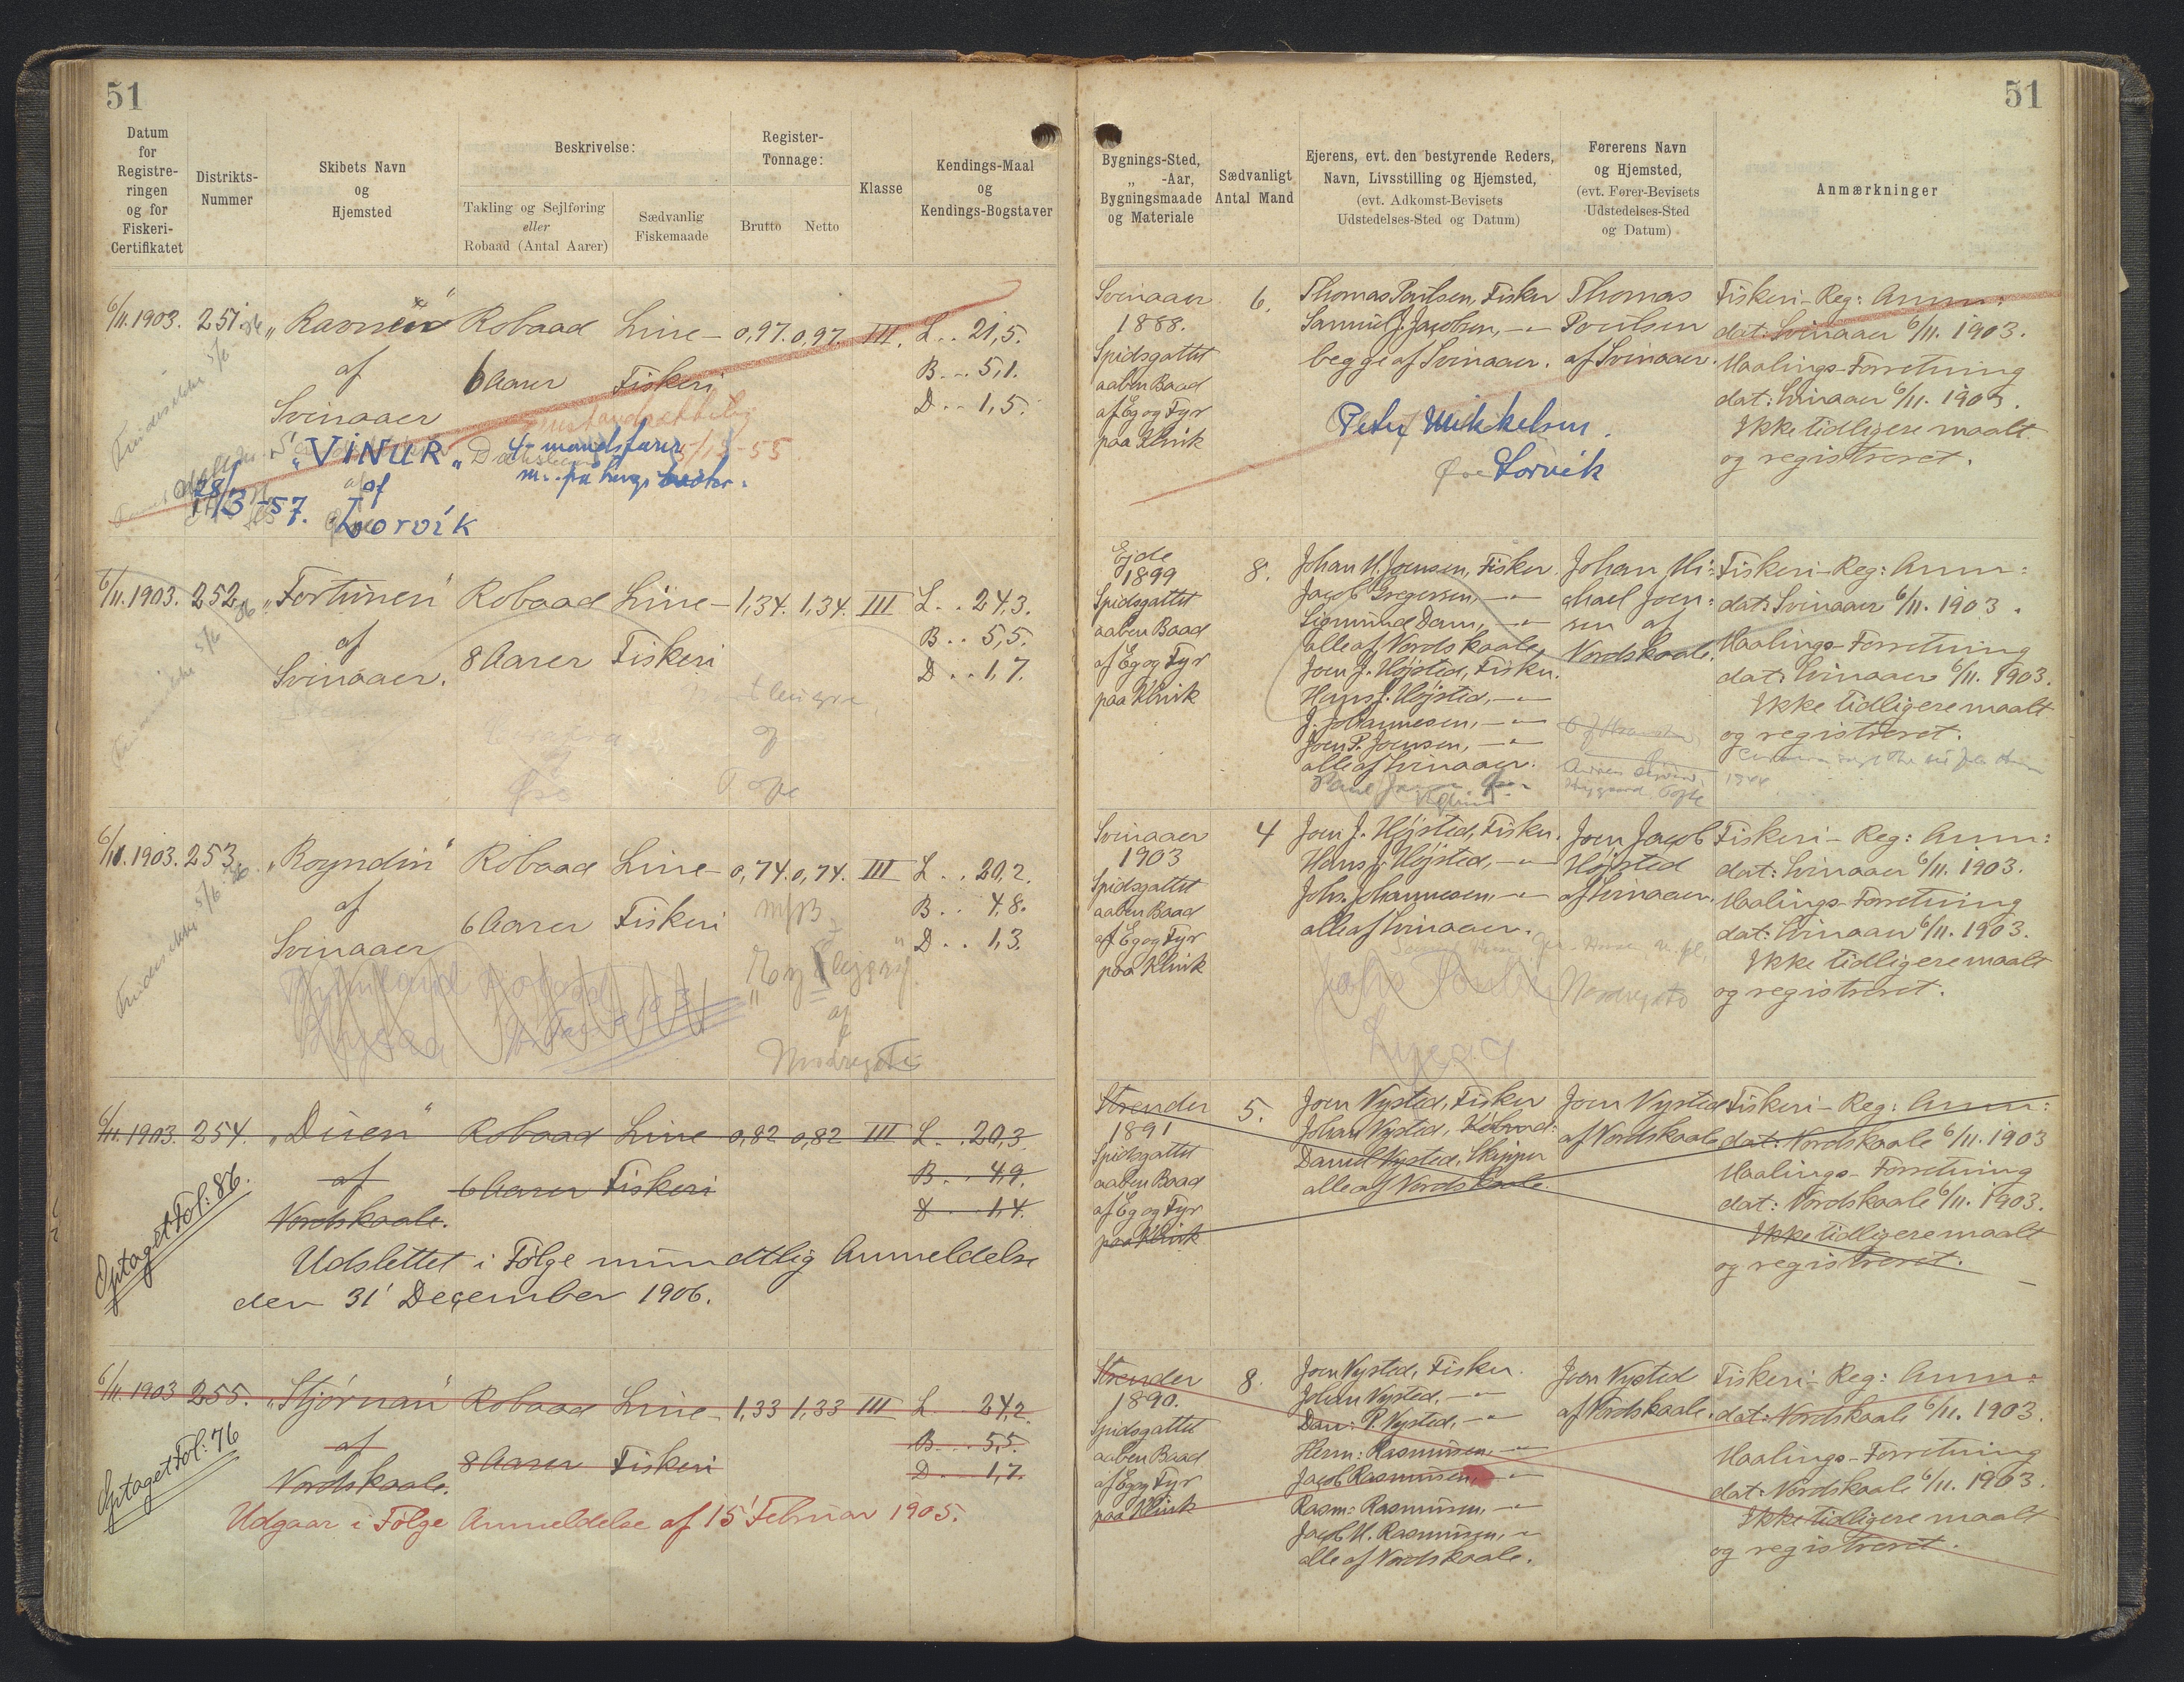 51
Datum
for
Registre-
ringen
og for
Fiskeri-
Certifikatet
Distrikts-
Nummer
Skibets Navn
og
Hjemsted
Beskrivelse:
Takling og Sejlføring
eller
Robaad (Antal Aarer)
Sædvanlig
Fiskemaade
Register-
Tonnage:
Brutto Netto
Klasse
Kendings-Maal
og
Kendings-Bogstaver
6/11. 1903. 251. Robaad Line- 0,97. 0,97. III. L . . 21,5.
af 6 Aarer Fiskeri B . . 5,1.
Svinaaer D . . 1,5.
5/12-55
"VINUR" 4-mandsfarer
28/3-57. af
Lorvík
6/11. 1903. 252. "Fortunen" Robaad Line- 1,34. 1,34. III L . . 24,3.
af 8 Aarer Fiskeri B . . 5,5.
Svinaaer. D . . 1,7.
6/11. 1903. 253. "Royndin" Robaad Line- 0,74. 0,74. III L . . 20,2.
af 6 Aarer Fiskeri B . . 4,8.
Svinaaer D . . 1,3.
af
6/11. 1903. 254. "Duen" Robaad Line 0,82 0,82 III L . . 20,3
af 6 Aarer Fiskeri B . . 4,9.
Nordskaale. D . . 1,4.
Optaget Fol: 86.
Udslettet i Følge mundtlig Anmeldelse
den 31' December 1906.
6/11. 1903 255. "Stjørnan" Robaad Line- 1,33 1,33 III L 24,2.
af 8 Aarer Fiskeri B . . 5,5.
Nordskaale. D . . 1,7.
Optaget Fol: 76
Udgaar i Følge Anmeldelse af 15' Februar 1905.
51
Bygnings-Sted,
„ -Aar,
Bygningsmaade
og Materiale
Sædvanligt
Antal Mand
Ejerens, evt. den bestyrende Reders,
Navn, Livsstilling og Hjemsted,
(evt. Adkomst-Bevisets
Udstedelses-Sted og Datum)
Førerens Navn
og Hjemsted,
(evt. Fører-Bevisets
Udstedelses-Sted
og Datum)
Anmærkninger
Svinaaer
1888.
Spidsgattet
aaben Baad
af Eg og Fyr
paa Klink
6.
Thomas Poulsen, Fisker
Samuel J. Jacobsen, -"-
begge af Svinaaer.
Thomas
Poulsen
af Svinaaer.
Fiskeri-Reg: Anm:
dat: Svinaaer 6/11. 1903.
Maalings-Forretning
dat: Svinaaer 6/11. 1903.
Ikke tidligere maalt
og registreret.
Petur Mikkelsen.
Lorvík
Ejde
1899
Spidsgattet
aaben Baad
af Eg og Fyr
paa Klink
8.
Johan M. Joensen, Fisker.
Jacob Gregersen, -"-
Sigmund Dam, -"-
alle af Nordskaale,
Joen J. Højsted, Fisker.
Hans J. Højsted, -"-
J. Johannesen, -"-
Joen P. Joensen, -"-
alle af Svinaaer.
Johan Mi-
chael Joen-
sen af
Nordskaale.
Fiskeri-Reg: Anm:
dat: Svinaaer 6/11. 1903.
Maalings-Forretning
dat: Svinaaer 6/11. 1903.
Ikke tidligere maalt
og registreret.
Svinaaer
1903
Spidsgattet
aaben Baad
af Eg og Fyr
paa Klink
4
Joen J. Højsted, Fisker.
Hans J. Højsted, -"-
Johs. Johannesen, -"-
alle af Svinaaer.
Joen Jacob
Højsted
af Svinaaer.
Fiskeri-Reg: Anm:
dat: Svinaaer 6/11. 1903.
Maalings-Forretning
dat: Svinaaer 6/11. 1903.
Ikke tidligere maalt
og registreret.
Strender
1891
Spidsgattet
aaben Baad
af Eg og Fyr
paa Klink
5.
Joen Nysted, Fisker
Johan Nysted,
Daniel Nysted, Skipper
alle af Nordskaale.
Joen Nysted
af Nordskaale.
Fiskeri-Reg: Anm:
dat: Nordskaale 6/11. 1903
Maalings-Forretning
dat: Nordskaale 6/11. 1903.
Ikke tidligere maalt
og registreret.
Strender
1890.
Spidsgattet
aaben Baad
af Eg og Fyr
paa Klink
8.
Joen Nysted, Fisker.
Johan Nysted, -"-
Dan: P. Nysted, -"-
Herm: Rasmussen, -"-
Jacob Rasmussen, -"-
Rasm: Rasmussen, -"-
Jacob M. Rasmussen, -"-
alle af Nordskaale.
Joen Nysted
af Nordskaale.
Fiskeri-Reg: Anm:
dat: Nordskaale 6/11. 1903.
Maalings-Forretning
dat: Nordskaale 6/11. 1903.
Ikke tidligere maalt
og registreret.